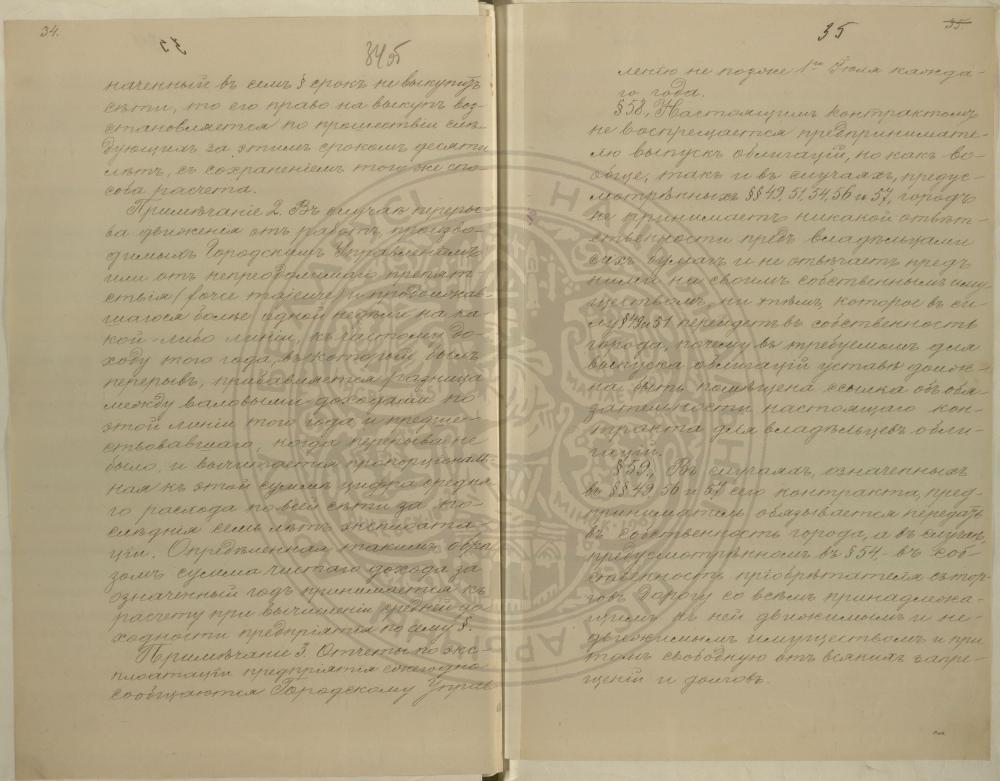 34.
34 об
наченный въ семъ § срокъ не выкупитъ
сѣти, то его право на выкупъ воз-
становляется по прошествіи слѣ-
дующихъ за этимъ срокомъ десяти
лѣтъ, съ сохраненіемъ того же спо-
соба расчета.
Примѣчаніе 2. Въ случаѣ переры-
ва движенія отъ работъ, произво-
димыхъ Городскимъ Управленіемъ
или отъ непреодолимаго препят-
ствія (force majeure) и продолжав-
шагося болѣе одной недѣли на ка-
кой-либо линіи, къ чистому до-
ходу того года, въ которомъ былъ
перерывъ, прибавляется разница
между валовыми доходами по
этой линіи того года и предше-
ствовавшаго, когда перерыва не
было, и вычитается пропорціональ-
ная къ этой суммѣ цифра средня-
го расхода по всей сѣти за по-
слѣднія семь лѣтъ эксплоата-
ціи. Опредѣленная такимъ обра-
зомъ сумма чистаго дохода за
означенный годъ принимается къ
расчету при вычисленіи средней до-
ходности предпріятія по сему §.
Примѣчаніе 3. Отчеты по экс-
плоатаціи предпріятія ежегодно
сообщаются Городскому Управ-
35
35.
ленію не позже 1го Іюля каждa-
го года.
§ 58. Настоящимъ контрактомъ
не воспрещается предпринимате-
лю выпускъ облигацій, но какъ во-
обще, такъ и въ случаяхъ, предус-
мотрѣнныхъ §§ 49, 51, 54, 56 и 57, городъ
не принимаетъ никакой отвѣт-
ственности предъ владѣльцами
сихъ бумагъ и не отвѣчаетъ предъ
ними ни своимъ собственнымъ иму-
ществомъ, ни тѣмъ, которое въ си-
лу § 49 и 51 перейдетъ въ собственность
города, почему въ требуемомъ для
выпуска облигацій уставѣ долж-
на быть помѣщена ссылка объ обя-
зательности настоящаго кон-
тракта для владѣльцевъ обли-
гацій.
§ 59. Въ случаяхъ, означенныхъ
въ §§ 49, 56 и 57 сего контракта, пред-
приниматель обязывается передать
въ собственность города, а въ случаѣ,
предусмотрѣнномъ въ § 54,- въ соб-
ственность пріобрѣтателя съ тор-
говъ дорогу со всѣмъ принадлежа-
щимъ къ ней движимымъ и не-
движимымъ имуществомъ и при
томъ свободную отъ всякихъ запре-
щеній и долговъ.